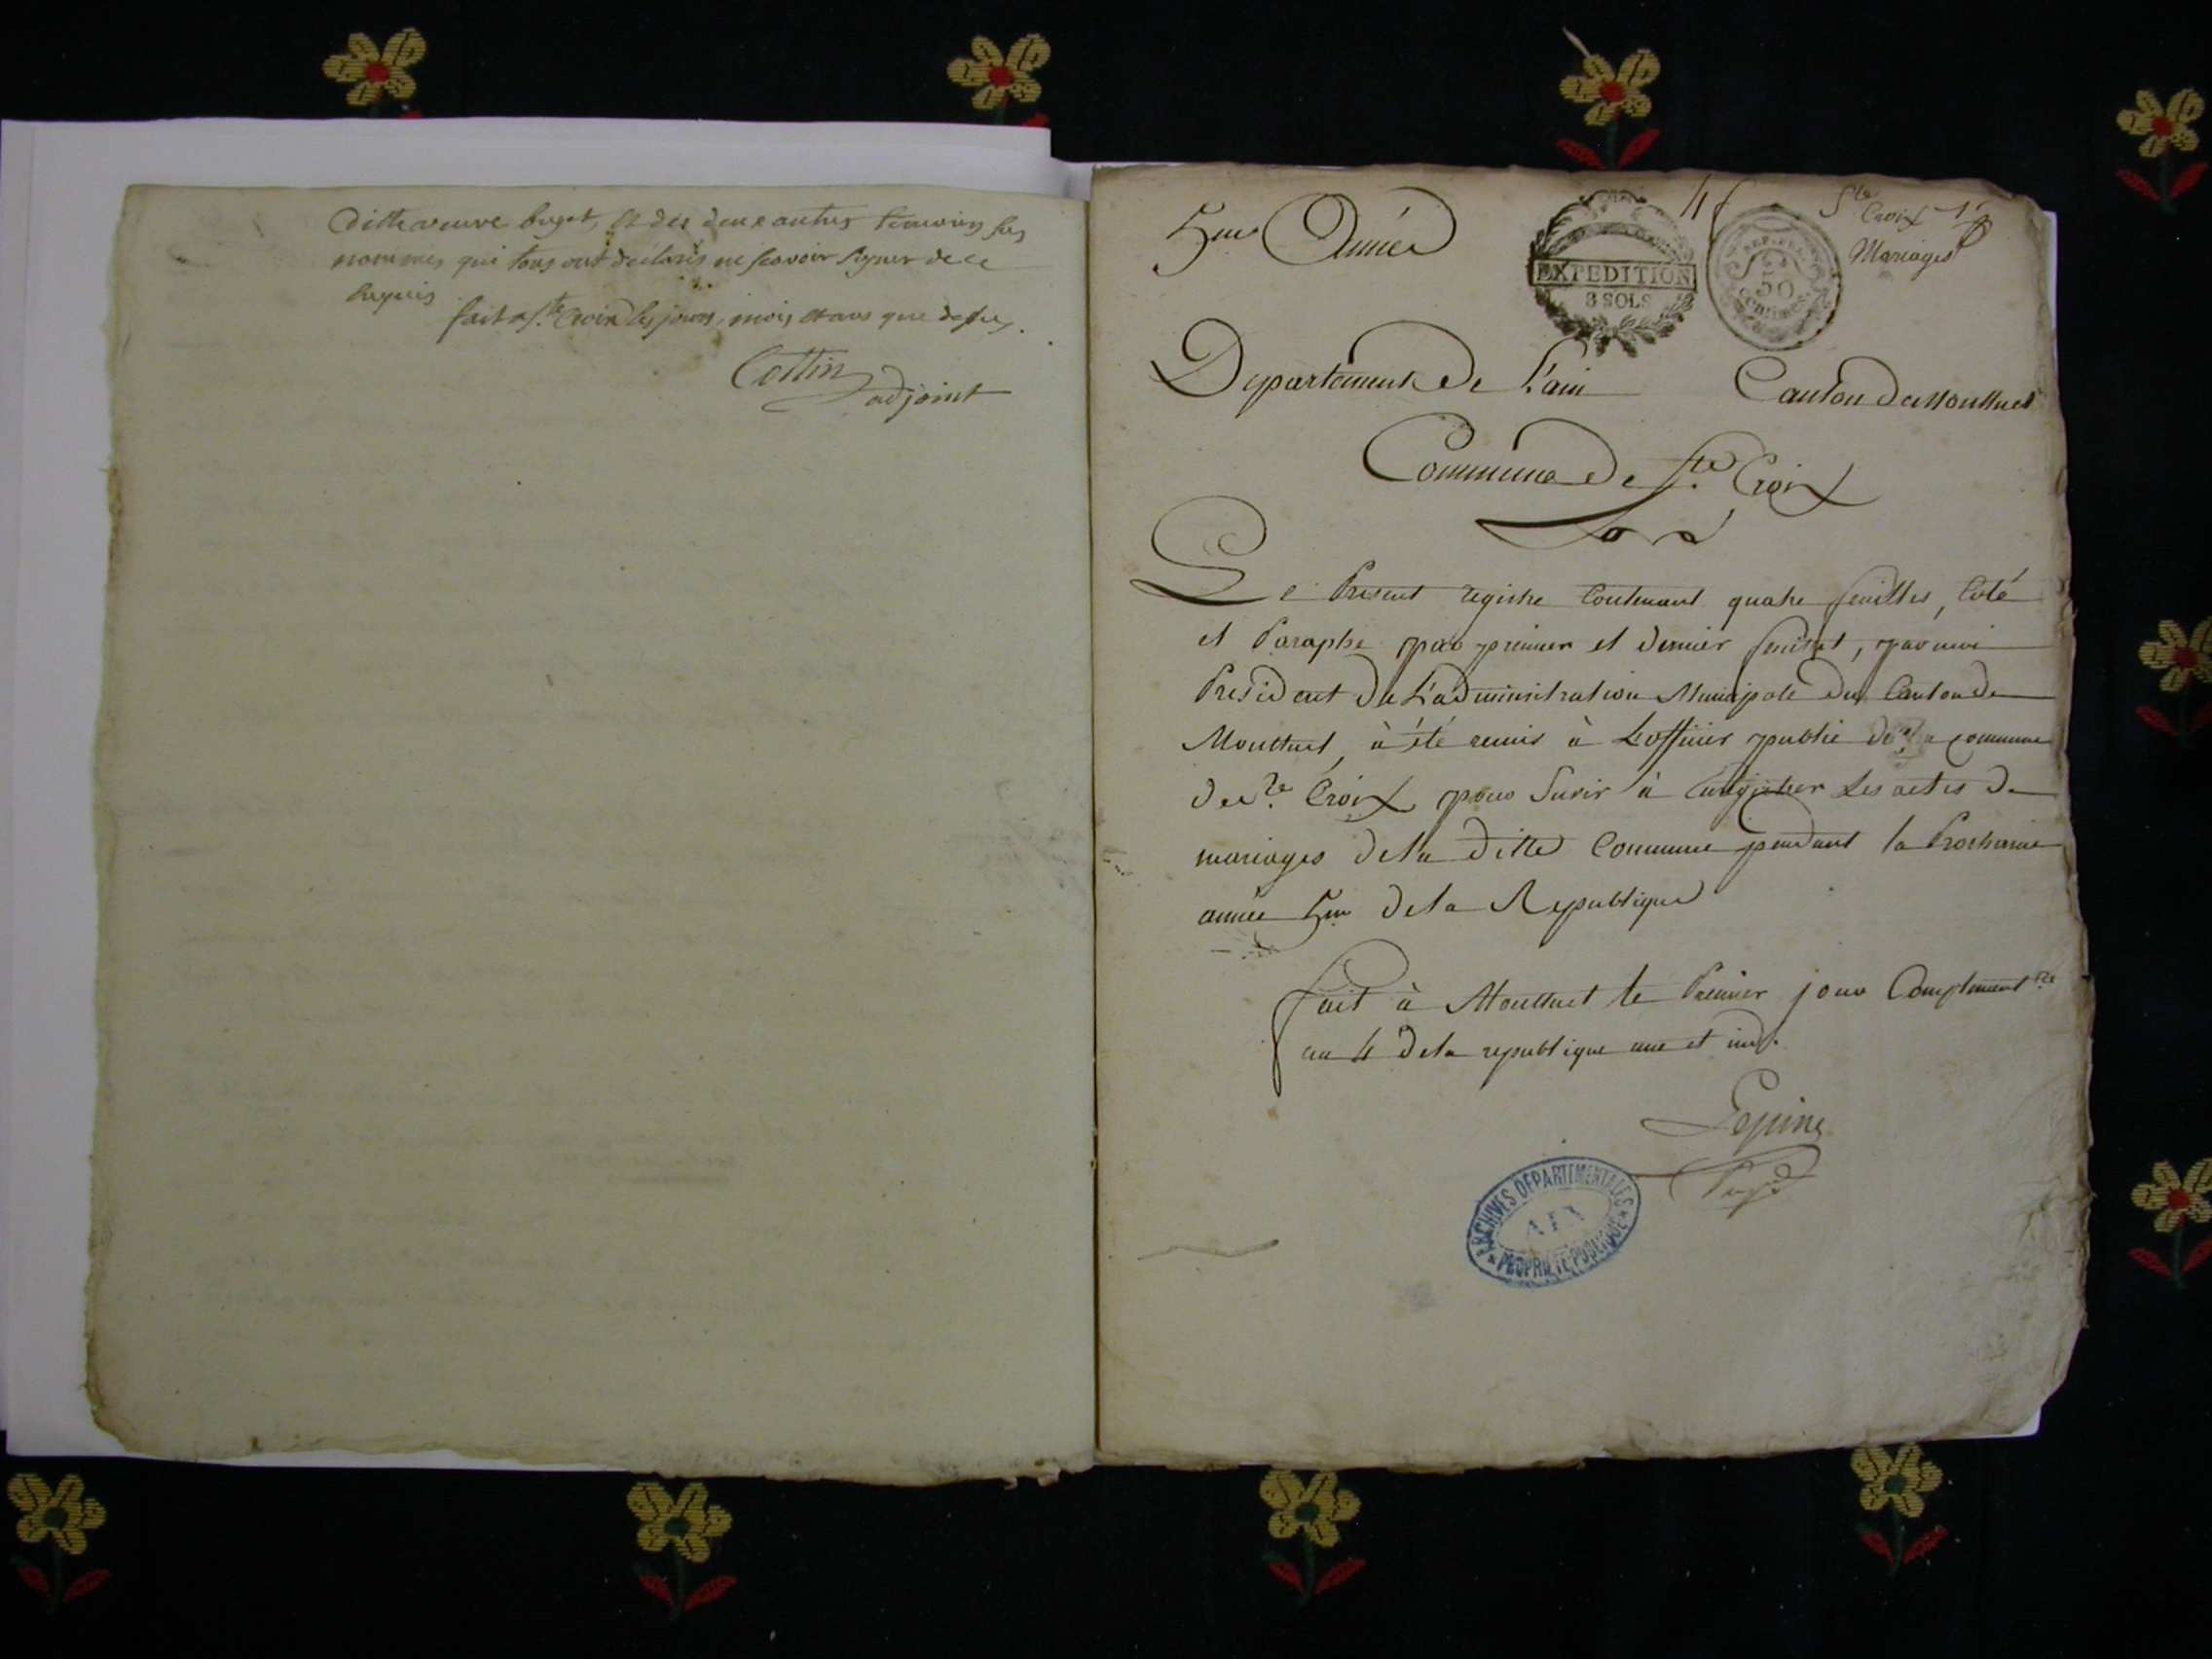 ditte veuve buget, et des deux autres temoins sus
nommes, qui tous ont déclarés ne scavoir signer de ce
requis
fait a ste Croix les jours, mois et ans que dessus.
Cottin
adjoint
5me Année
4
Ste
Croix
1r
Mariages
EXPEDITION
3 SOLS
REP. FRA.
50
centimes
Departement de L'ain
Canton de Montluel
Commune de Ste Croix
Le Present registre Contenant quatre feuilles, Coté
et Paraphe par premier et dernier feuillet, par moi
President de L'administration Municipale du Canton de
Montluel, à été remis à L'officier public de la commune
de Ste Croix pour Servir à Enregistrer Les actes de
mariages de la ditte Commune pendant la Prochaine
année 5me de la Republique
fait à Montluel le Premier jour Complement.re
an 4 de la republique une et ind.
Lepine
ARCHIVES DEPARTEMENTALES
AIN
PROPRIETE PUBLIQUE